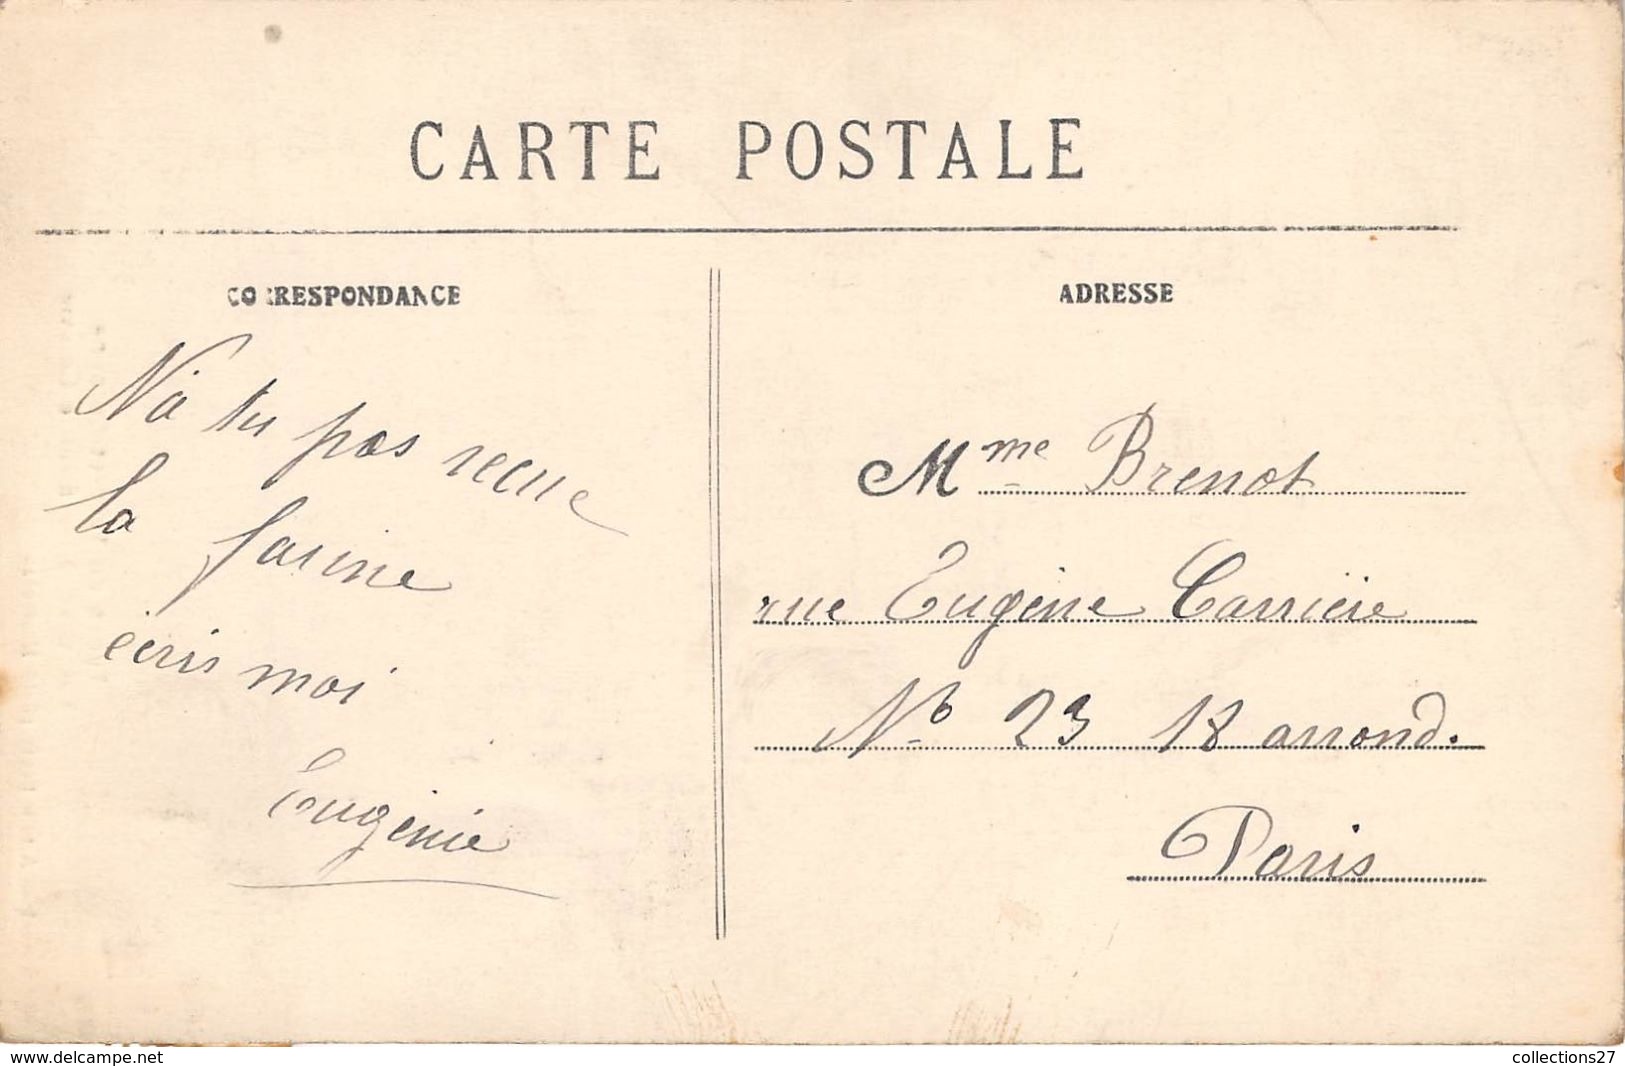 CARTE POSTALE
CORRESPONDANCE
N'a tu pas recue
la farine
écris moi
Eugénie
ADRESSE
Mme Brenot
rue Eugène Carrière
No 23 18 arrond.
Paris
collections27